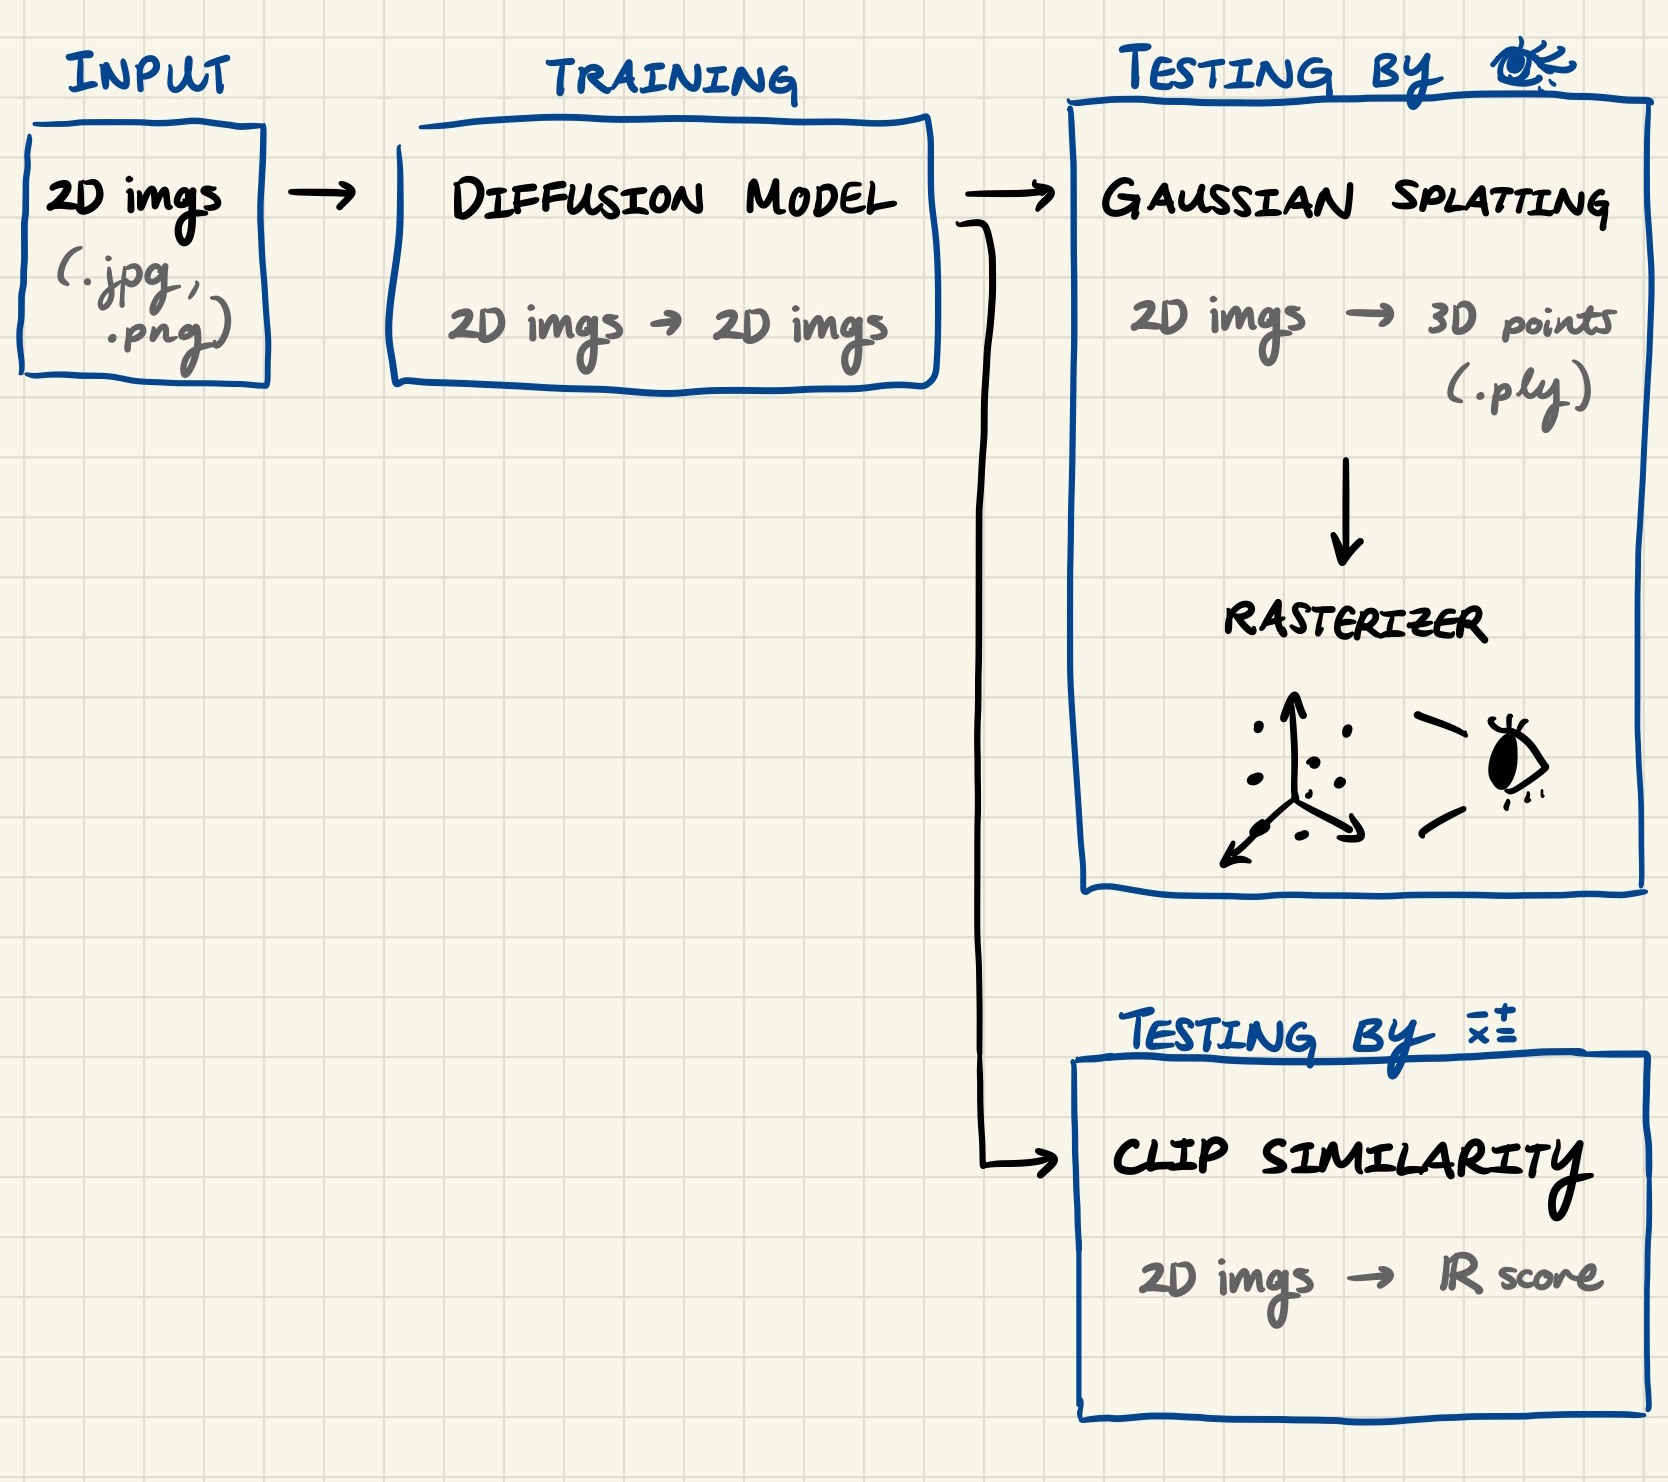 INPUT
2D imgs
(.jpg,
.png)
TRAINING
DIFFUSION MODEL
2D imgs → 2D imgs
TESTING BY
GAUSSIAN SPLATTING
2D imgs → 3D points
(.ply)
RASTERIZER
TESTING BY
- +
× =
CLIP SIMILARITY
2D imgs → ℝ score